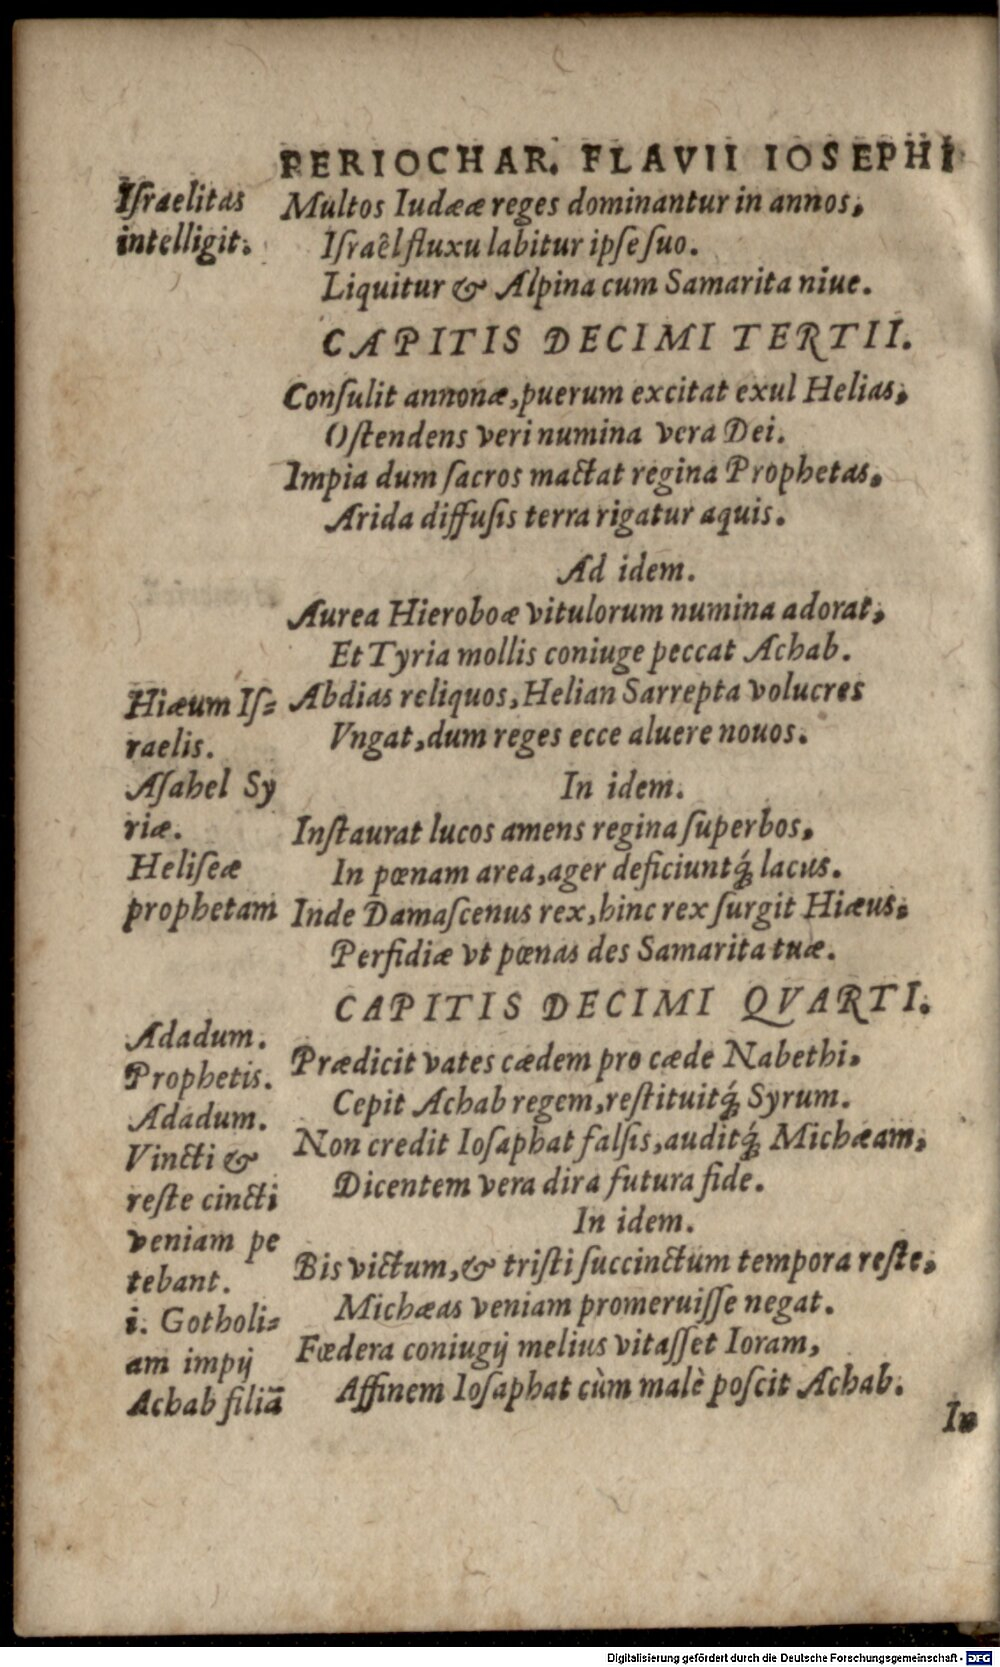 PERIOCHAR. FLAVII IOSEPHI
Iſraelitas
intelligit.
Multos Iudææ reges dominantur in annos,
Iſraêl fluxu labitur ipſe ſuo.
Liquitur & Alpina cum Samarita niue.
CAPITIS DECIMI TERTII.
Conſulit annonæ, puerum excitat exul Helias,
Oſtendens veri numina vera Dei.
Impia dum ſacros mactat regina Prophetas,
Arida diffuſis terra rigatur aquis.
Ad idem.
Aurea Hieroboæ vitulorum numina adorat,
Et Tyria mollis coniuge peccat Achab.
Abdias reliquos, Helian Sarrepta volucres
Vngat, dum reges ecce aluere nouos.
Hiæum Iſ-
raelis.
Aſahel Sy
riæ.
Heliſeæ
prophetam
In idem.
Inſtaurat lucos amens regina ſuperbos,
In pœnam area, ager deficiuntq́; lacus.
Inde Damaſcenus rex, hinc rex ſurgit Hiæus,
Perfidiæ vt pœnas des Samarita tuæ.
CAPITIS DECIMI QVARTI.
Adadum.
Prophetis.
Adadum.
Vincti &
reſte cincti
veniam pe
tebant.
i. Gotholi-
am impij
Achab filiã
Prædicit vates cædem pro cæde Nabethi,
Cepit Achab regem, reſtituitq́; Syrum.
Non credit Ioſaphat falſis, auditq́; Michæam,
Dicentem vera dira futura fide.
In idem.
Bis victum, & triſti ſuccinctum tempora reſte,
Michæas veniam promeruiſſe negat.
Fœdera coniugij melius vitaſſet Ioram,
Affinem Ioſaphat cùm malè poſcit Achab.
In
Digitalisierung gefördert durch die Deutsche Forschungsgemeinschaft - DFG